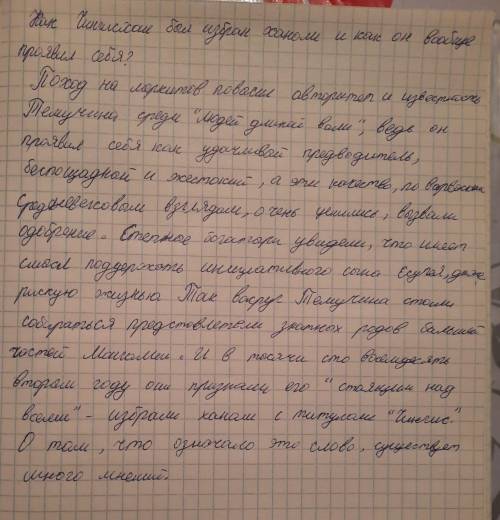 Как Чингисхан был избран ханом и как он вообще
проявил себя?
Поход на меркитов повысил авторитет и известность
Темучина среди "людей длинной воли", ведь он
проявил себя как удачливый предводитель,
беспощадной и жестокий, а эти качества, по
Средневековым взглядам, очень ценились, вызвали
одобрение. Степные богатыри увидели, что имеет
смысл поддержать инициативного сына Есугея, даже
рискую жизнью Так вокруг Темучина стали
собираться представлетели знатных родов большей
частей Монголии. И в тысячи сто восемдесять
втором году они признали его "стоящим над
всеми" - избрали ханам с титулами "Чингис".
О том, что означало это слово, существует
много мнений.